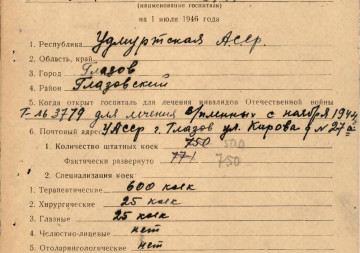 (наименование госпиталя)
на 1 июля 1946 года
1. Республика Удмуртская АССР.
2. Область, край
3. Город Глазов
4. Район Глазовский
5. Когда открыт госпиталь для лечения инвалидов Отечественной войны
Г-ль 3779 для лечения в/пленных с ноября 1944
6. Почтовый адрес УАССР г. Глазов ул. Кирова д N 27а
1. Количество штатных коек 750 500
Фактически развернуто 771 750
2. Специализация коек
1. Терапевтические 600 коек
2. Хирургические 25 коек
3. Глазные 25 коек
4. Челюстно-лицевые нет
5. Отоларингологические нет